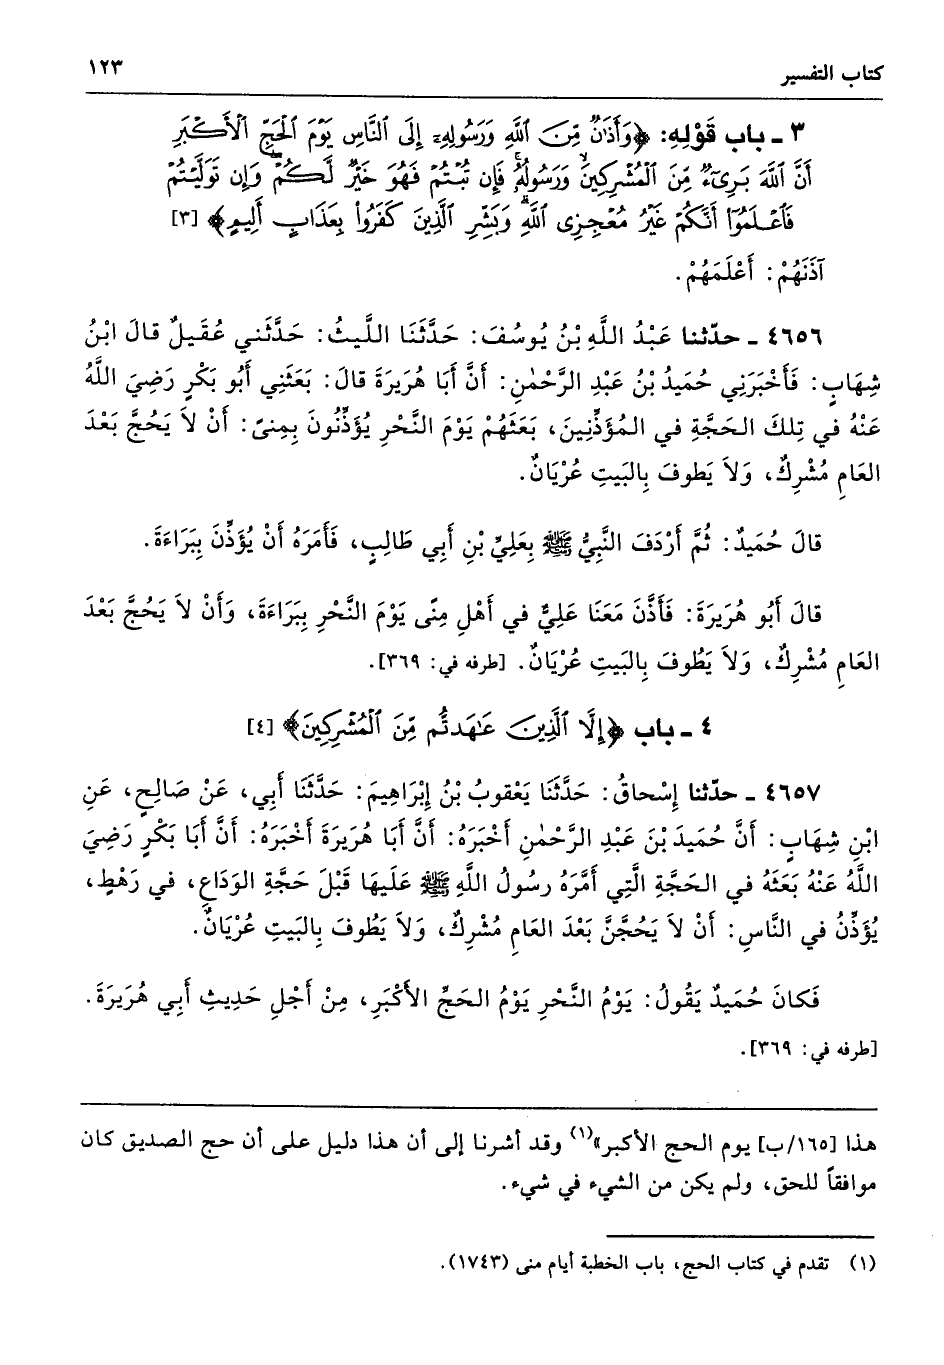 كتاب التفسير
١٢٣
٣ ـ باب قَوْلِهِ: ﴿وَأَذَٰنٌ مِّنَ ٱللَّهِ وَرَسُولِهِۦٓ إِلَى ٱلنَّاسِ يَوْمَ ٱلْحَجِّ ٱلْأَكْبَرِ
أَنَّ ٱللَّهَ بَرِىٓءٌ مِّنَ ٱلْمُشْرِكِينَۙ وَرَسُولُهُۥۚ فَإِن تُبْتُمْ فَهُوَ خَيْرٌ لَّكُمْۖ وَإِن تَوَلَّيْتُمْ
فَٱعْلَمُوٓا۟ أَنَّكُمْ غَيْرُ مُعْجِزِى ٱللَّهِۗ وَبَشِّرِ ٱلَّذِينَ كَفَرُوا۟ بِعَذَابٍ أَلِيمٍ﴾ [٣]
آذَنَهُمْ: أَعْلَمَهُمْ.
٤٦٥٦ ـ حدّثنا عَبْدُ اللَّهِ بْنُ يُوسُفَ: حَدَّثَنَا اللَّيثُ: حَدَّثَني عُقَيلٌ قالَ ابْنُ
شِهَابٍ: فَأَخْبَرَنِي حُمَيدُ بْنُ عَبْدِ الرَّحْمٰنِ: أَنَّ أَبَا هُرَيرَةَ قالَ: بَعَثَنِي أَبُو بَكْرٍ رَضِيَ اللَّهُ
عَنْهُ في تِلكَ الحَجَّةِ في المُؤَذِّنِينَ، بَعَثَهُمْ يَوْمَ النَّحْرِ يُؤَذِّنُونَ بِمِنىً: أَنْ لاَ يَحُجَّ بَعْدَ
العَامِ مُشْرِكٌ، وَلاَ يَطوفَ بِالبَيتِ عُرْيَانٌ.
قالَ حُمَيدٌ: ثُمَّ أَرْدَفَ النَّبِيُّ ﷺ بِعَلِيِّ بْنِ أَبِي طَالِبٍ، فَأَمَرَهُ أَنْ يُؤَذِّنَ بِبَرَاءَةَ.
قالَ أَبُو هُرَيرَةَ: فَأَذَّنَ مَعَنَا عَلِيٌّ في أَهْلِ مِنًى يَوْمَ النَّحْرِ بِبَرَاءَةَ، وَأَنْ لاَ يَحُجَّ بَعْدَ
العَامِ مُشْرِكٌ، وَلاَ يَطُوفَ بِالبَيتِ عُرْيَانٌ. [طرفه في: ٣٦٩].
٤ ـ باب ﴿إِلَّا ٱلَّذِينَ عَٰهَدتُّم مِّنَ ٱلْمُشْرِكِينَ﴾ [٤]
٤٦٥٧ ـ حدّثنا إِسْحاقُ: حَدَّثَنَا يَعْقوبُ بْنُ إِبْرَاهِيمَ: حَدَّثَنَا أَبِي، عَنْ صَالِحٍ، عَنِ
ابْنِ شِهَابٍ: أَنَّ حُمَيدَ بْنَ عَبْدِ الرَّحْمٰنِ أَخْبَرَهُ: أَنَّ أَبَا هُرَيرَةَ أَخْبَرَهُ: أَنَّ أَبَا بَكْرٍ رَضِيَ
اللَّهُ عَنْهُ بَعَثَهُ في الحَجَّةِ الَّتِي أَمَّرَهُ رسُولُ اللَّهِ ﷺ عَلَيهَا قَبْلَ حَجَّةِ الوَدَاعِ، في رَهْطٍ،
يُؤَذِّنُ في النَّاسِ: أَنْ لاَ يَحُجَّنَّ بَعْدَ العَامِ مُشْرِكٌ، وَلاَ يَطُوفَ بِالبَيتِ عُرْيَانٌ.
فَكانَ حُمَيدٌ يَقُولُ: يَوْمُ النَّحْرِ يَوْمُ الحَجِّ الأَكْبَرِ، مِنْ أَجْلِ حَدِيثِ أَبِي هُرَيرَةَ.
[طرفه في: ٣٦٩].
هذا [١٦٥/ب] يوم الحج الأكبر»(١) وقد أشرنا إلى أن هذا دليل على أن حج الصديق كان
موافقاً للحق، ولم يكن من الشيء في شيء.
(١) تقدم في كتاب الحج، باب الخطبة أيام منى (١٧٤٣).